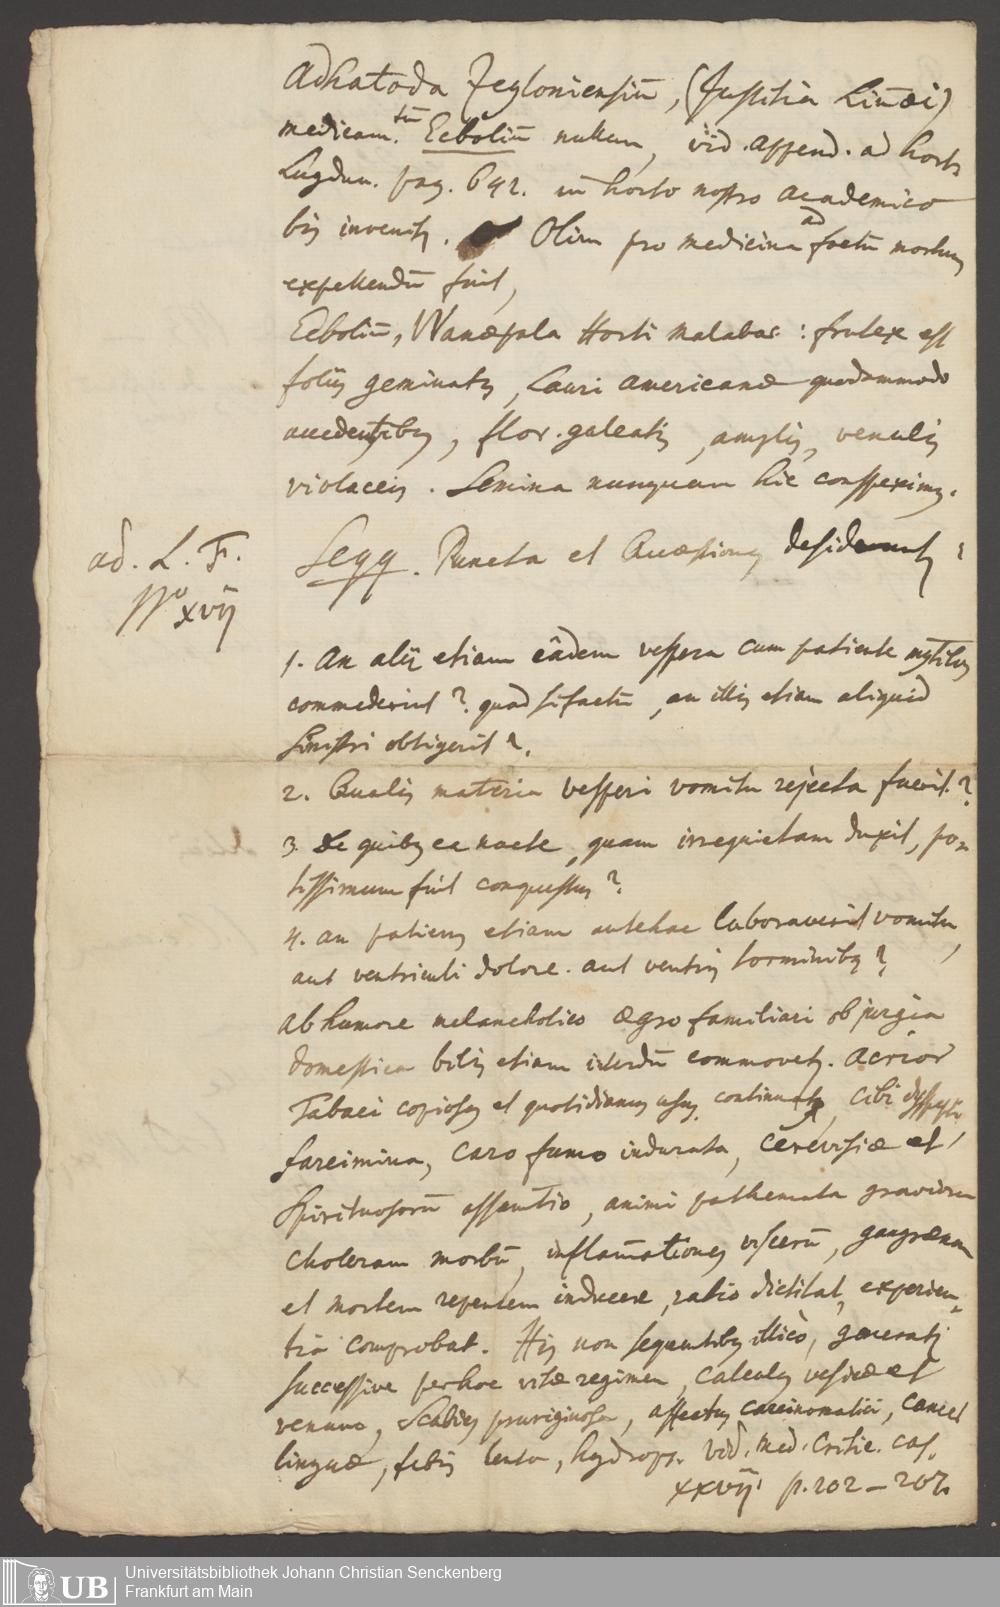 Adhatoda Zeyloniensiū, (Justitia Liñæi)
medicam.tũ Ecboliū nullum, vid. append. ad hort.
Lugdun. pag. 642. in horto nostro academico
bis invenitr. Olim pro medicina ad foetū mortuum
expellendū fuit,
Ecboliū, Wanæpala Horti malabar: frutex est
foliis geminatis, Lauri americanæ quodammodo
accedentibus, flor. galeatis, amplis, venulis
violaceis. Semina nunquam hic conspeximus.
ad. L. F.
No XVII
Seqq. Puncta et Quæstiones desiderantr:
1. An alii etiam eâdem vespera cum patiente mytilos
commederint? quod si factū, an illis etiam aliquid
sinistri obtigerit?
2. Qualis materia vesperi vomitu rejecta fuerit?
3. De quibus ea nocte, quam irrequietam duxit, po=
tissimum fuit conquestus?
4. an patiens etiam antehac laboraverit vomitu,
aut ventriculi dolore. aut ventris torminibus?
Ab humore melancholico ægro familiari ob jurgia
domestica bilis etiam interdū commovetr. Acrior
Tabaci copiosus et quotidianus usus continuatus, cibi
farcimina, caro fumo indurata, cerevisiæ et
Spirituosorū assumtio, animi pathemata graviora
choleram morbū, inflam̄ationes viscerū, gangrænam
et mortem repentem inducere, ratio dictitat, experien=
tia comprobat. His non sequentibus illicò, generatr
successive per hoc vitæ regimen, calculus vesicæ et
renum, scabies pruriginosa, affectus carcinomatici, cancer
linguæ, febris lenta, hydrops. vid. Med. Critic. cas.
XXVII. p. 202 – 207.
Universitätsbibliothek Johann Christian Senckenberg
Frankfurt am Main
UB